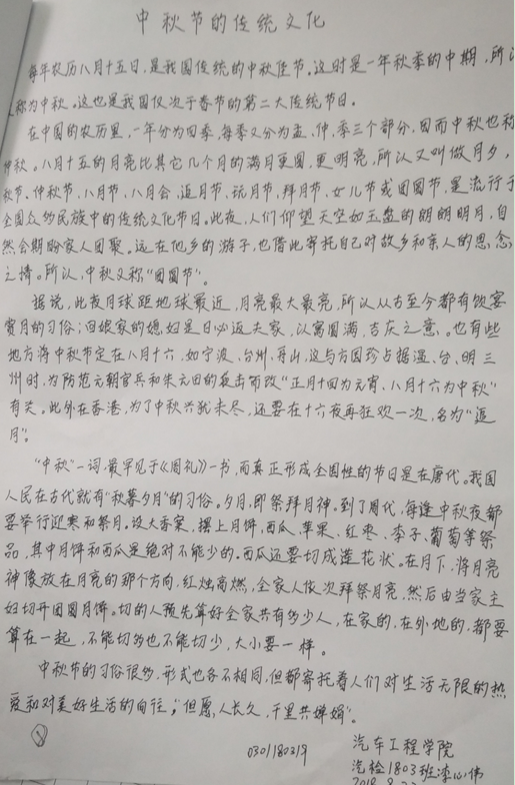 中秋节的传统文化
每年农历八月十五日,是我国传统的中秋佳节。这时是一年秋季的中期,所以
称为中秋。这也是我国仅次于春节的第二大传统节日。
在中国的农历里,一年分为四季,每季又分为孟、仲、季三个部分,因而中秋也称
仲秋。八月十五的月亮比其它几个月的满月更圆,更明亮,所以又叫做月夕,
秋节、仲秋节、八月节、八月会、追月节、玩月节、拜月节、女儿节或团圆节,是流行于
全国众多民族中的传统文化节日。此夜,人们仰望天空如玉盘的朗朗明月,自
然会期盼家人团聚。远在他乡的游子,也借此寄托自己对故乡和亲人的思念
之情。所以,中秋又称“团圆节”。
据说,此夜月球距地球最近,月亮最大最亮,所以从古至今都有饮宴
赏月的习俗;回娘家的媳妇是日必返夫家,以寓圆满、吉庆之意。也有些
地方将中秋节定在八月十六,如宁波、台州、舟山,这与方国珍占据温、台、明三
州时,为防范元朝官兵和朱元田的袭击而改“正月十四为元宵、八月十六为中秋”
有关。此外在香港,为了中秋兴犹未尽,还要在十六夜再狂欢一次,名为“追
月”。
“中秋”一词,最早见于《周礼》一书,而真正形成全国性的节日是在唐代。我国
人民在古代就有“秋暮夕月”的习俗。夕月,即祭拜月神。到了周代,每逢中秋夜都
要举行迎寒和祭月。设大香案,摆上月饼、西瓜、苹果、红枣、李子、葡萄等祭
品,其中月饼和西瓜是绝对不能少的。西瓜还要切成莲花状。在月下,将月亮
神像放在月亮的那个方向,红烛高燃,全家人依次拜祭月亮,然后由当家主
妇切开团圆月饼。切的人预先算好全家共有多少人,在家的,在外地的,都要
算在一起,不能切多也不能切少,大小要一样。
中秋节的习俗很多,形式也各不相同,但都寄托着人们对生活无限的热
爱和对美好生活的向往,“但愿人长久,千里共婵娟”。
0301180319
汽车工程学院
汽检1803班